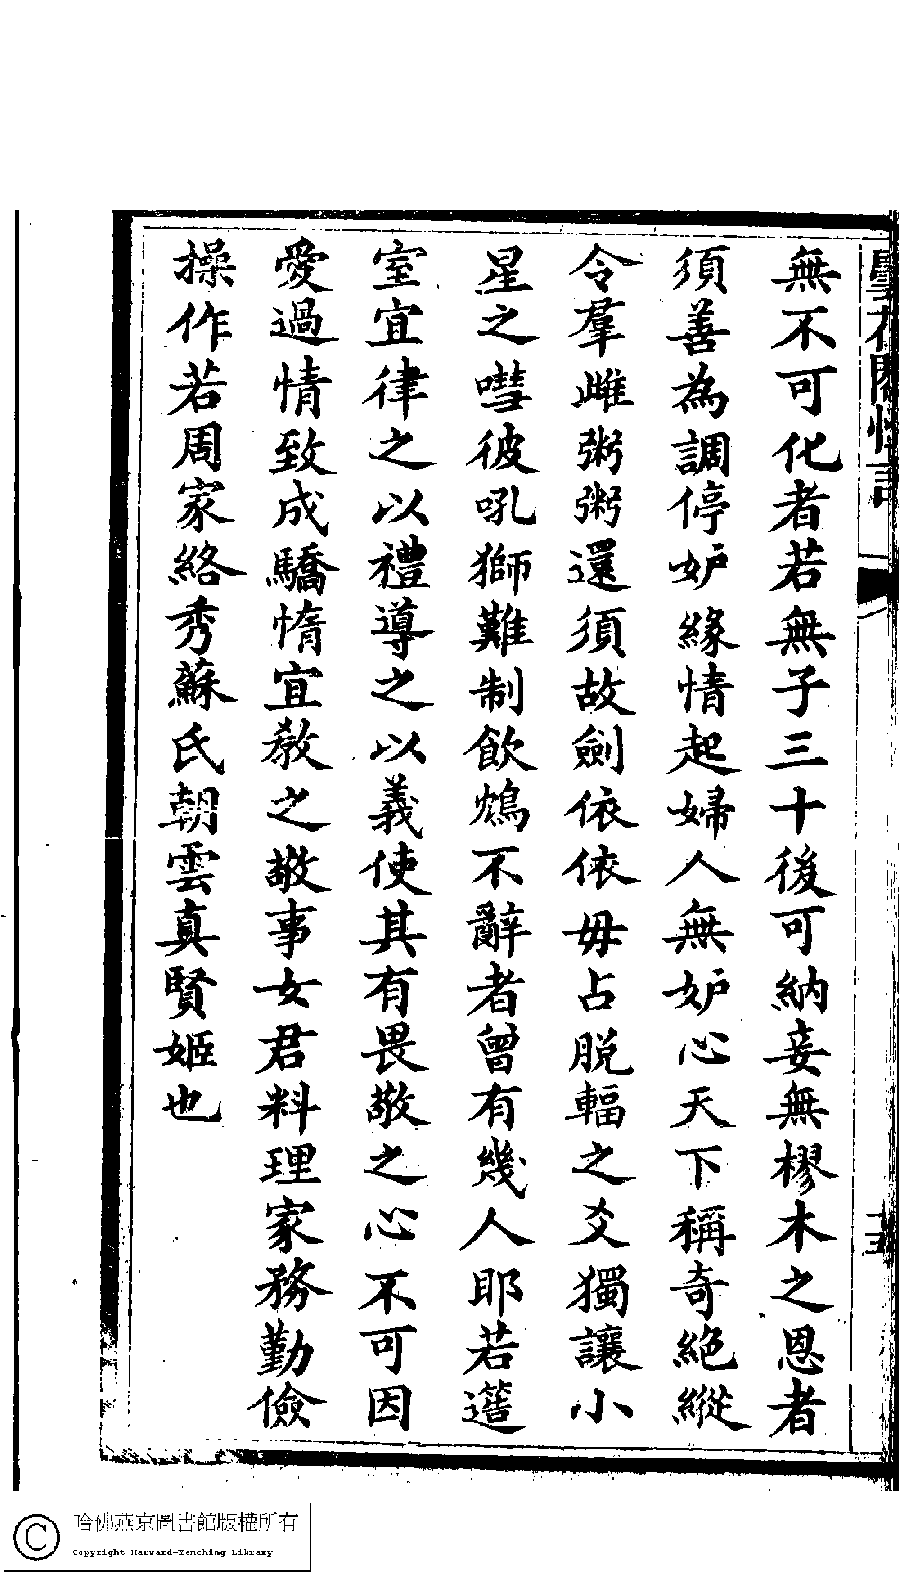 無不可化者若無子三十後可納妾無樛木之恩者
須善為調停妒緣情起婦人無妒心天下稱奇絕縱
令羣雌粥粥還須故劍依依毋占脫輻之爻獨讓小
星之嘒彼吼獅難制飲鴆不辭者曾有幾人耶若簉
室宜律之以禮導之以義使其有畏敬之心不可因
愛過情致成驕惰宜教之敬事女君料理家務勤儉
操作若周家絡秀蘇氏朝雲真賢姬也
哈佛燕京圖書館版權所有
Copyright Harvard-Yenching Library